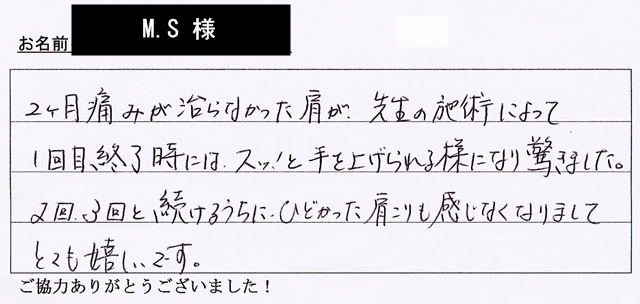 M.S 様
お名前
2ヶ月痛みが治らなかった肩が、先生の施術によって
1回目終了時には、スッ!と手を上げられる様になり驚きました。
2回、3回と続けるうちに、ひどかった肩こりも感じなくなりまして
とても嬉しいです。
ご協力ありがとうございました!